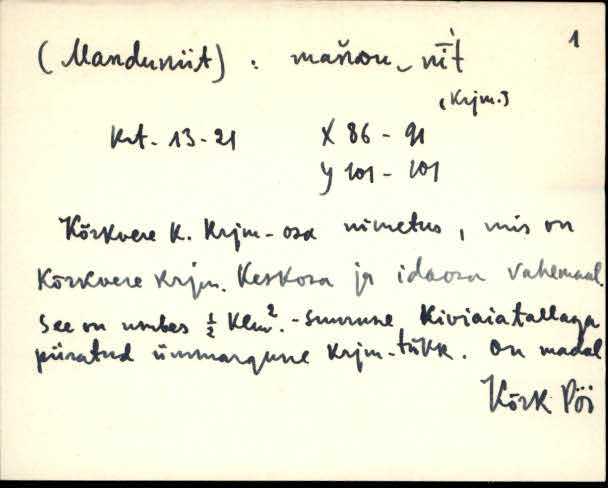 1
(Manduniit) : mańdu‿nīt
(Krjm.)
Krt. 13-21 X 86 - 91
Y 101 - 101
Kõrkvere k. Krjm-osa nimetus, mis on
Kõrkvere krjm. Keskosa ja idaosa vahemaal.
See on umbes ½ Klm². -suurune Kiviaiatallaga
piiratud ümmargune krjm-tükk. On madal
Kõrk Pöi